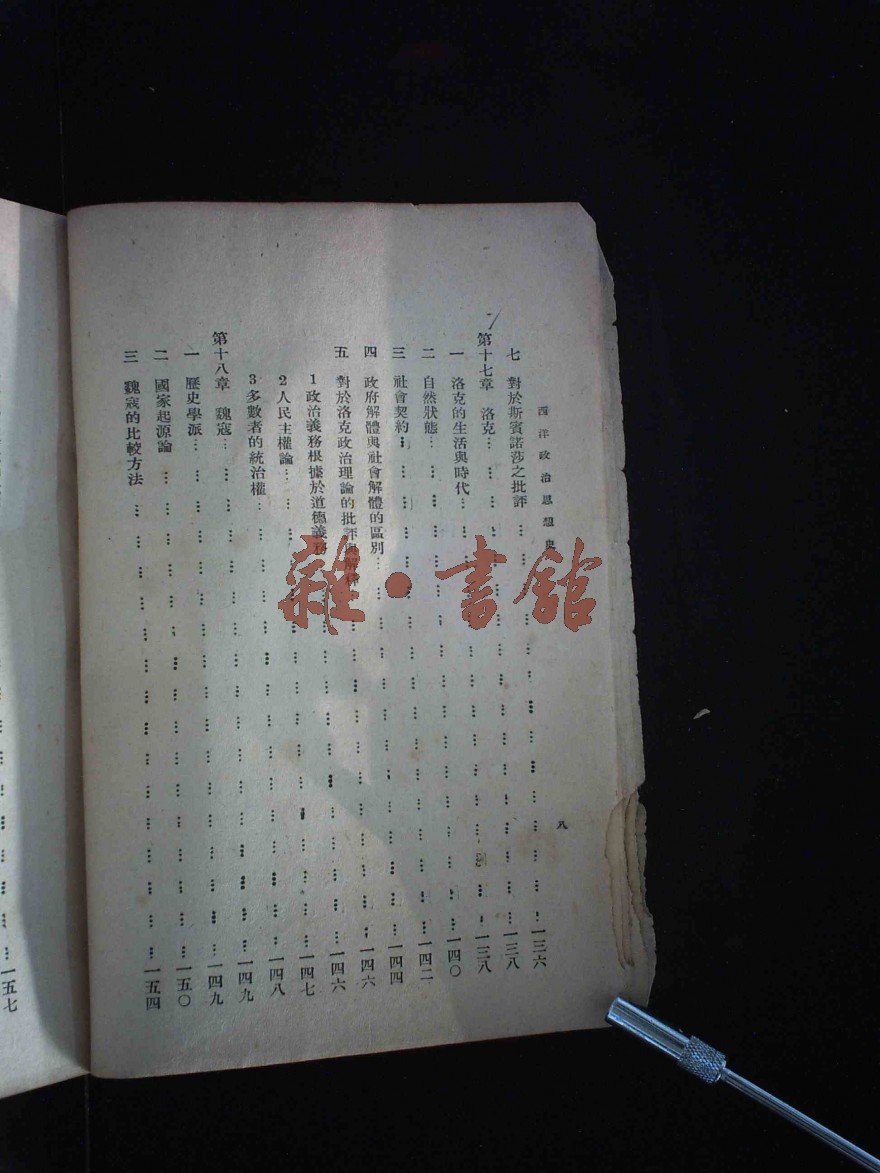 西洋政治思想史 八
七 對於斯賓諾莎之批評…………一三六
第十七章 洛克…………一三八
一 洛克的生活與時代…………一三八
二 自然狀態…………一四〇
三 社會契約…………一四二
四 政府解體與社會解體的區別…………一四四
五 對於洛克政治理論的批評與解釋…………一四六
1 政治義務根據於道德義務…………一四六
2 人民主權論…………一四七
3 多數者的統治權…………一四八
第十八章 魏寇…………一四九
一 歷史學派…………一四九
二 國家起源論…………一五〇
三 魏寇的比較方法…………一五四
…………一五七
雜·書館